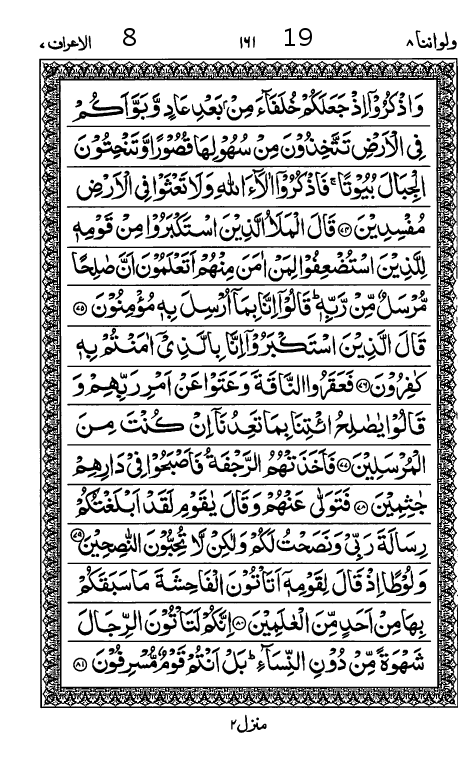 ولواننا ۸ 19 ۱۶۱ 8 الاعراف ۷
وَاذْكُرُوْٓا اِذْ جَعَلَكُمْ خُلَفَآءَ مِنْۢ بَعْدِ عَادٍ وَّبَوَّاَكُمْ
فِى الْاَرْضِ تَتَّخِذُوْنَ مِنْ سُهُوْلِهَا قُصُوْرًا وَّتَنْحِتُوْنَ
الْجِبَالَ بُيُوْتًا ۚ فَاذْكُرُوْٓا اٰلَآءَ اللّٰهِ وَلَا تَعْثَوْا فِى الْاَرْضِ
مُفْسِدِيْنَ ﴿۷۴﴾ قَالَ الْمَلَاُ الَّذِيْنَ اسْتَكْبَرُوْا مِنْ قَوْمِهٖ
لِلَّذِيْنَ اسْتُضْعِفُوْا لِمَنْ اٰمَنَ مِنْهُمْ اَتَعْلَمُوْنَ اَنَّ صٰلِحًا
مُّرْسَلٌ مِّنْ رَّبِّهٖ ؕ قَالُوْٓا اِنَّا بِمَآ اُرْسِلَ بِهٖ مُؤْمِنُوْنَ ﴿۷۵﴾
قَالَ الَّذِيْنَ اسْتَكْبَرُوْٓا اِنَّا بِالَّذِىْٓ اٰمَنْتُمْ بِهٖ
كٰفِرُوْنَ ﴿۷۶﴾ فَعَقَرُوا النَّاقَةَ وَعَتَوْا عَنْ اَمْرِ رَبِّهِمْ وَ
قَالُوْا يٰصٰلِحُ ائْتِنَا بِمَا تَعِدُنَآ اِنْ كُنْتَ مِنَ
الْمُرْسَلِيْنَ ﴿۷۷﴾ فَاَخَذَتْهُمُ الرَّجْفَةُ فَاَصْبَحُوْا فِىْ دَارِهِمْ
جٰثِمِيْنَ ﴿۷۸﴾ فَتَوَلّٰى عَنْهُمْ وَقَالَ يٰقَوْمِ لَقَدْ اَبْلَغْتُكُمْ
رِسَالَةَ رَبِّىْ وَنَصَحْتُ لَكُمْ وَلٰكِنْ لَّا تُحِبُّوْنَ النّٰصِحِيْنَ ﴿۷۹﴾
وَلُوْطًا اِذْ قَالَ لِقَوْمِهٖٓ اَتَاْتُوْنَ الْفَاحِشَةَ مَا سَبَقَكُمْ
بِهَا مِنْ اَحَدٍ مِّنَ الْعٰلَمِيْنَ ﴿۸۰﴾ اِنَّكُمْ لَتَاْتُوْنَ الرِّجَالَ
شَهْوَةً مِّنْ دُوْنِ النِّسَآءِ ؕ بَلْ اَنْتُمْ قَوْمٌ مُّسْرِفُوْنَ ﴿۸۱﴾
منزل ۲